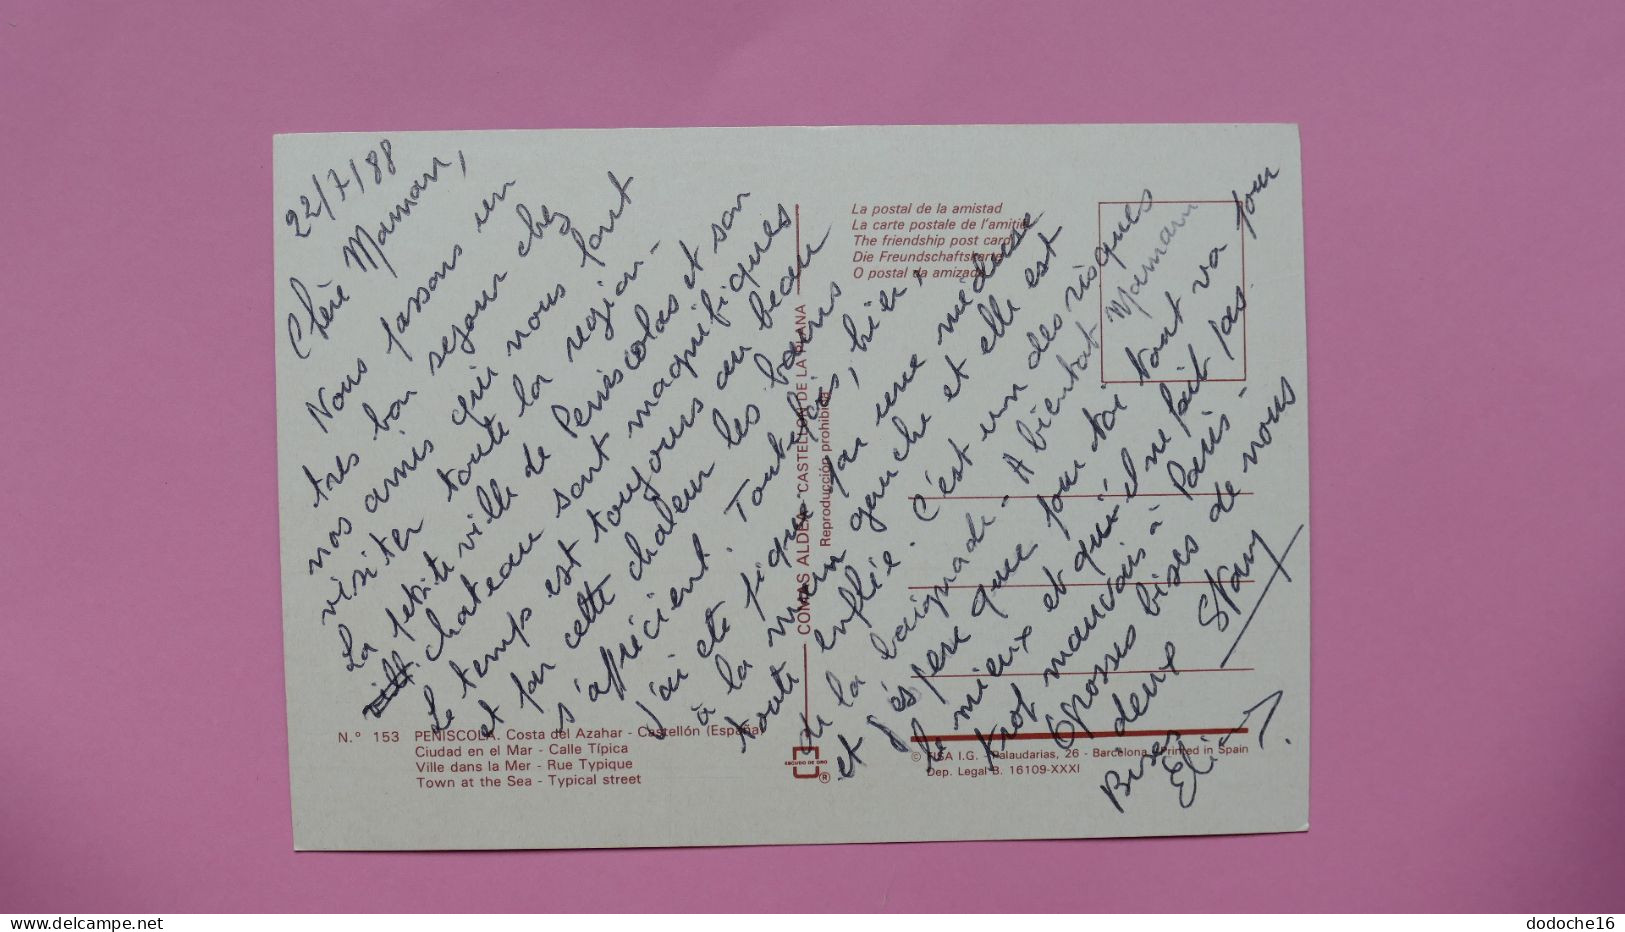 22/7/88
Chère Maman,
Nous passons un
tres bon sejour chez
nos amis qui nous font
visiter toute la region -
La petite ville de Peniscolas et son
chateau sont magnifiques
Le temps est toujours au beau
et par cette chaleur les bains
s'apprécient. Toutefois, hier,
J'ai eté piqué par une méduse
à la main gauche et elle est
toute enflée. C'est un des risques
de la baignade - A bientot Maman
et J'éspere que pour toi tout va pour
le mieux et qu'il ne fait pas
trop mauvais à Paris -
Grosses bises de nous
deux Stany
Bises
Eli
La postal de la amistad
La carte postale de l'amitié
The friendship post card
Die Freundschaftskarte
O postal da amizade
COMAS ALDEA - CASTELLON DE LA PLANA
Reproducción prohibida
N.º 153 PEÑISCOLA. Costa del Azahar - Castellón (España)
Ciudad en el Mar - Calle Típica
Ville dans la Mer - Rue Typique
Town at the Sea - Typical street
ESCUDO DE ORO
®
© FISA I.G. - Palaudarias, 26 - Barcelona - Printed in Spain
Dep. Legal B. 16109-XXXI
www.delcampe.net
dodoche16